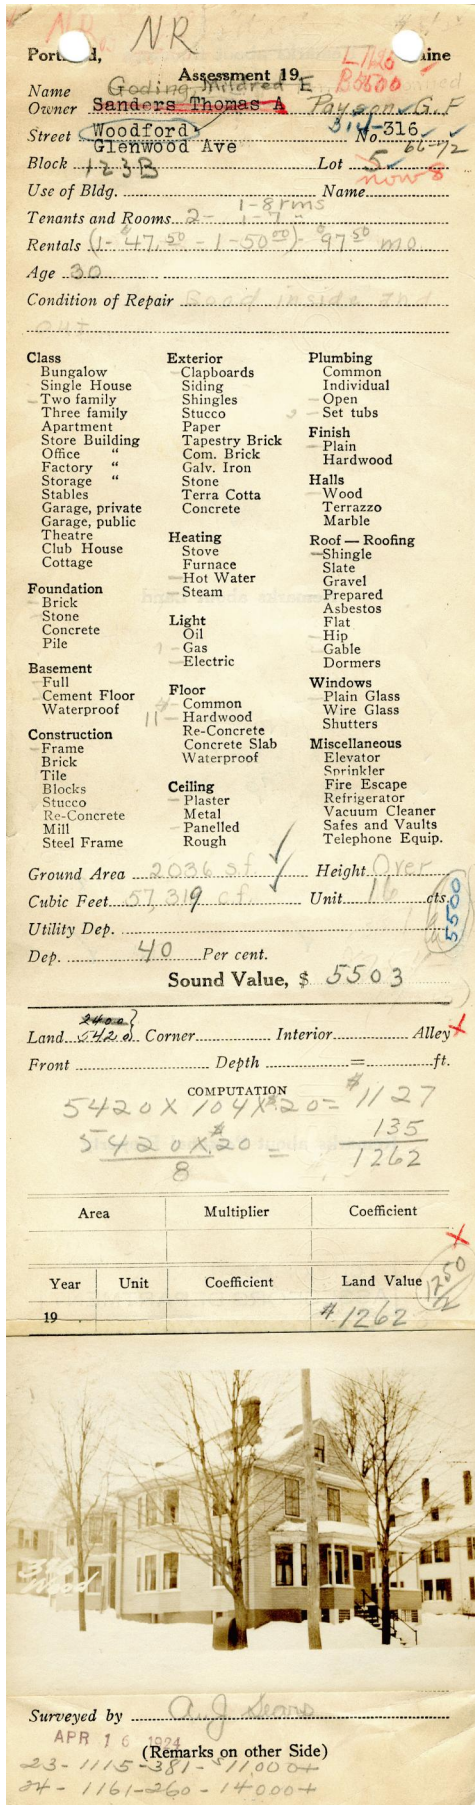 NR
NR
Portland, Maine
L1125
B5500
Assessment 19
Goding, Mildred E
Name
Owner Sanders Thomas A Payson G.F
Street Woodford No. 314-316
Glenwood Ave 66-72
Block 123B Lot 5
now 8
Use of Bldg. Name
1-8 rms
Tenants and Rooms 2- 1-7 "
Rentals (1- $47.50 - 1-50.00)- $97.50 mo
Age 30
Condition of Repair Good inside and
out
Class
Bungalow
Single House
Two family
Three family
Apartment
Store Building
Office "
Factory "
Storage "
Stables
Garage, private
Garage, public
Theatre
Club House
Cottage
Foundation
Brick
Stone
Concrete
Pile
Basement
Full
Cement Floor
Waterproof
Construction
Frame
Brick
Tile
Blocks
Stucco
Re-Concrete
Mill
Steel Frame
Exterior
Clapboards
Siding
Shingles
Stucco
Paper
Tapestry Brick
Com. Brick
Galv. Iron
Stone
Terra Cotta
Concrete
Heating
Stove
Furnace
Hot Water
Steam
Light
Oil
Gas
Electric
Floor
Common
11 - Hardwood
Re-Concrete
Concrete Slab
Waterproof
Ceiling
Plaster
Metal
Panelled
Rough
Plumbing
Common
Individual
Open
2 - Set tubs
Finish
Plain
Hardwood
Halls
Wood
Terrazzo
Marble
Roof — Roofing
Shingle
Slate
Gravel
Prepared
Asbestos
Flat
Hip
Gable
Dormers
Windows
Plain Glass
Wire Glass
Shutters
Miscellaneous
Elevator
Sprinkler
Fire Escape
Refrigerator
Vacuum Cleaner
Safes and Vaults
Telephone Equip.
Ground Area 2036 s.f. Height Over
Cubic Feet 57,319 c.f. Unit 16 cts.
5500
Utility Dep.
Dep. 40 Per cent.
Sound Value, $ 5503
2400
Land 5420 Corner Interior Alley X
Front Depth = ft.
COMPUTATION
5420 X 104 X $.20 = $1127
5420 X $.20 = 135
8 1262
Area Multiplier Coefficient
X
Year Unit Coefficient Land Value
1250
19 $1262
316
Wood
Surveyed by A. J. Sears
APR 16 1924
(Remarks on other Side)
23 - 1115 - 381 - $11,000+
24 - 1161 - 260 - 14000+